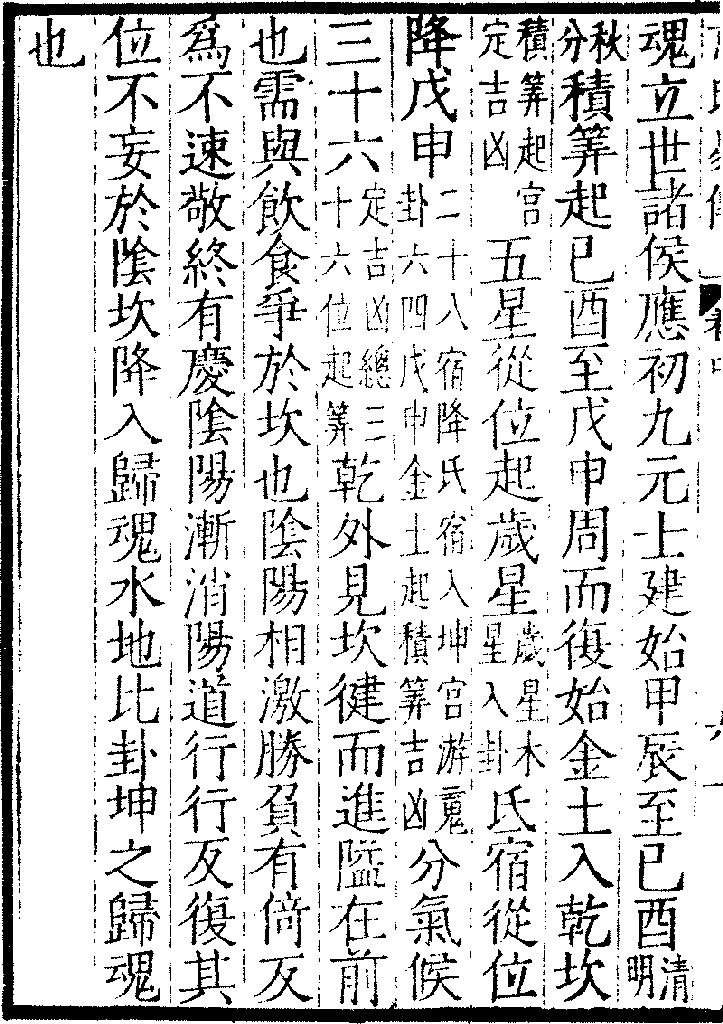 魂立世諸侯應初九元士建始甲辰至已酉清明
秋分積筭起已酉至戊申周而復始金土入乾坎
積筭起宫定吉凶五星從位起歲星歲星木星入卦氏宿從位
降戊申二十八宿降氏宿入坤宫游䰟卦六四戊申金土起積筭吉凶分氣候
三十六定吉凶總三十六位起筭乾外見坎徤而進隘在前
也需與飲食爭於坎也陰陽相激勝負有倚反
爲不速敬終有慶陰陽漸消陽道行行反復其
位不妄於陰坎降入歸魂水地比卦坤之歸魂
也